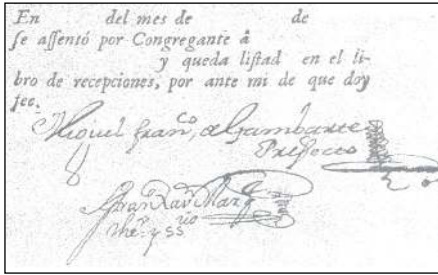 En del mes de de
ſe aſſentó por Congregante â
y queda liſtad en el li-
bro de recepciones, por ante mi de que doy
fee.
Miguel Fran.co de Gambarte
Prefecto
Fran.co Xav.r
The.o y SSrio